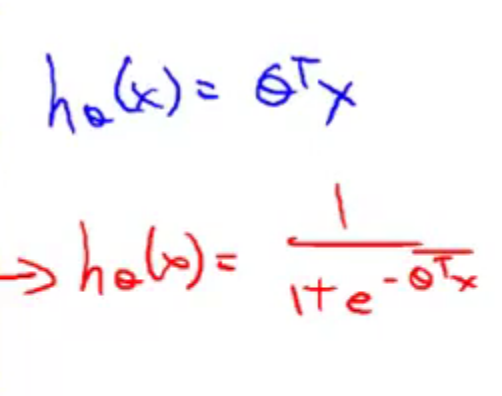 h_θ(x) = θ^T x
→ h_θ(x) = 1 / (1 + e^{-θ^T x})